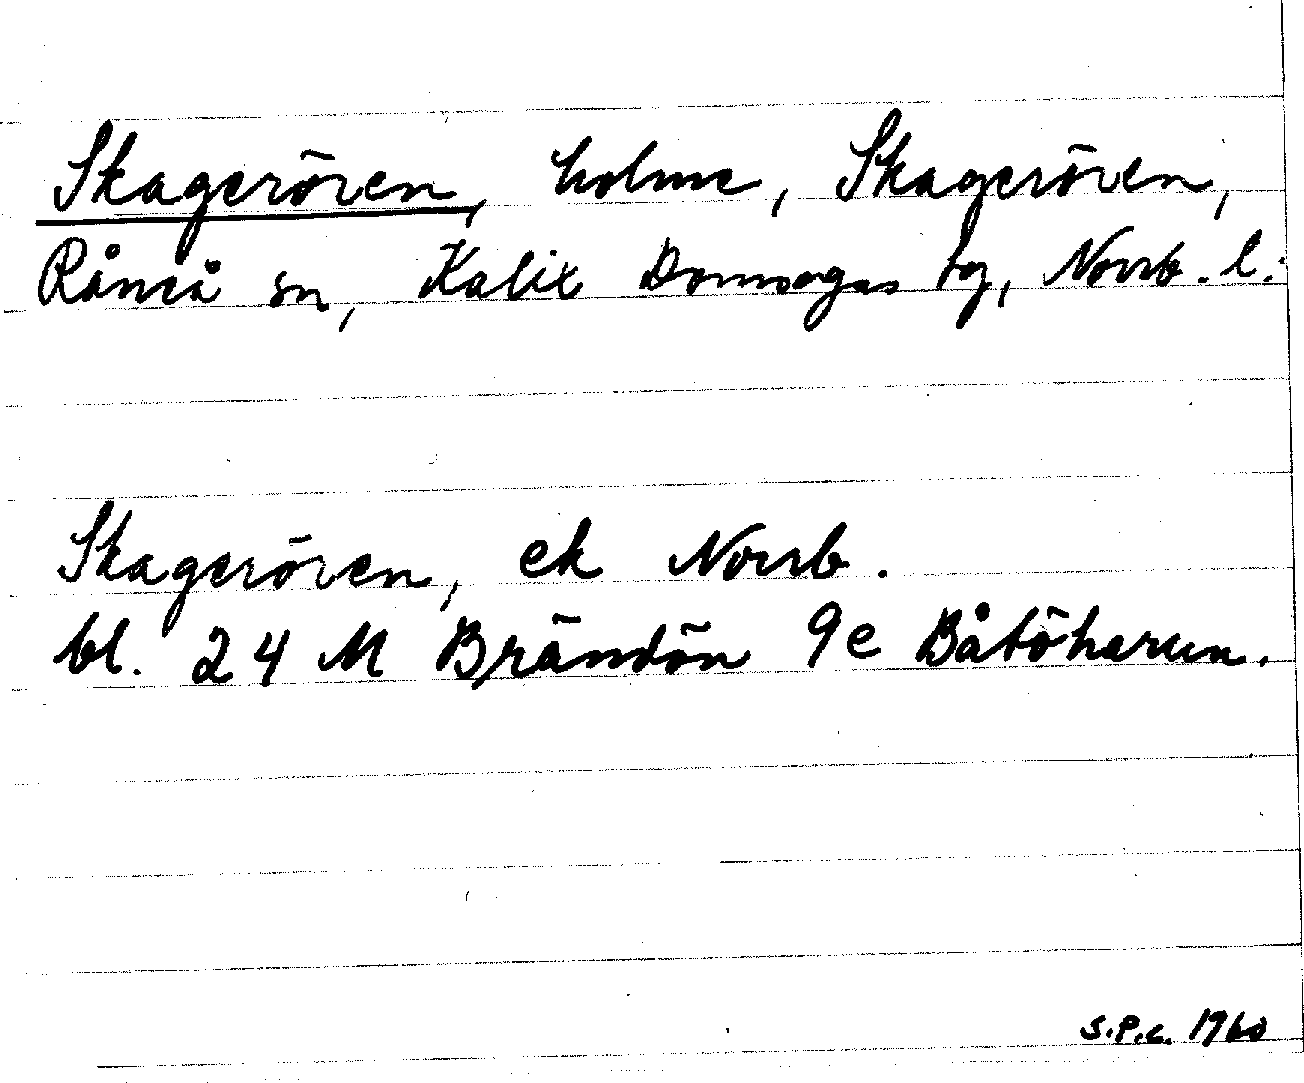 Skageröven, holme, Skageröven,
Råneå sn, Kalix Domsagas tg, Norrb. l.
Skageröven, ek Norrb.
bl. 24 M Brändön 9e Båtöharun.
S.P.C. 1960